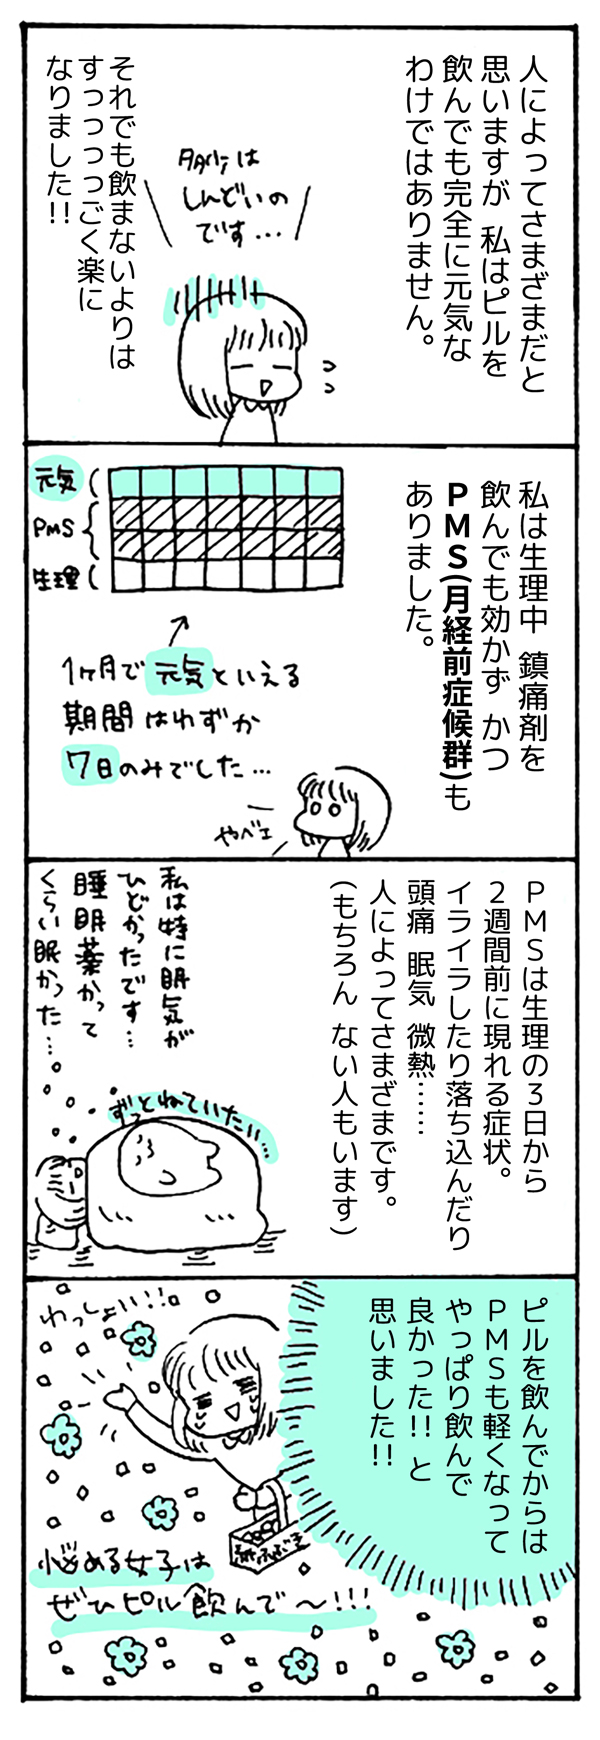 人によってさまざまだと
思いますが 私はピルを
飲んでも完全に元気な
わけではありません。
それでも飲まないよりは
すっっっっごく楽に
なりました!!
しんどいの
です…
私は生理中 鎮痛剤を
飲んでも効かず かつ
PMS(月経前症候群)も
ありました。
元気
PMS
生理
1ヶ月で元気といえる
期間はわずか
7日のみでした…
やべェ
PMSは生理の3日から
2週間前に現れる症状。
イライラしたり落ち込んだり
頭痛 眠気 微熱……
人によってさまざまです。
(もちろん ない人もいます)
私は特に眠気が
ひどかったです…
睡眠薬かって
くらい眠かった…
ずっとねていたい…
ピルを飲んでからは
PMSも軽くなって
やっぱり飲んで
良かった!! と
思いました!!
わっしょい!!
紙ふぶき
悩める女子は
ぜひピル飲んで〜!!!